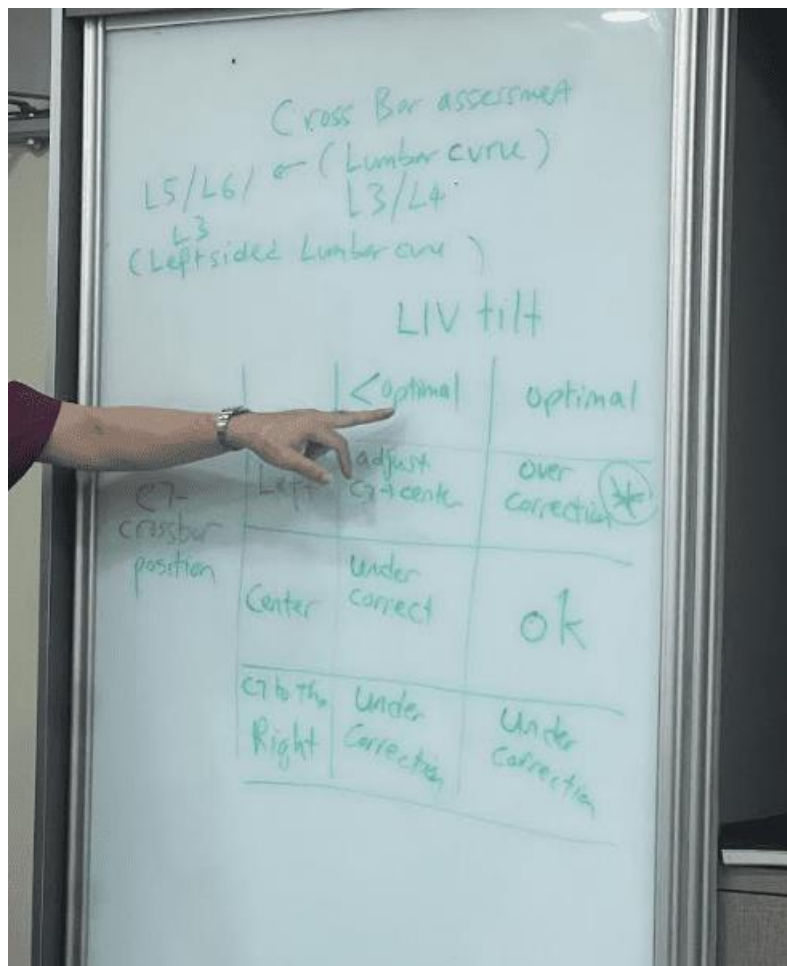 Cross Bar assessment
L5/L6/ ← (Lumbar curve)
L3 L3/L4
(Left sided Lumbar curve)
LIV tilt
<optimal optimal
C7- Left adjust C7→center over correction *
crossbar
position
Center under correct ok
C7 to the Right Under Correction Under Correction